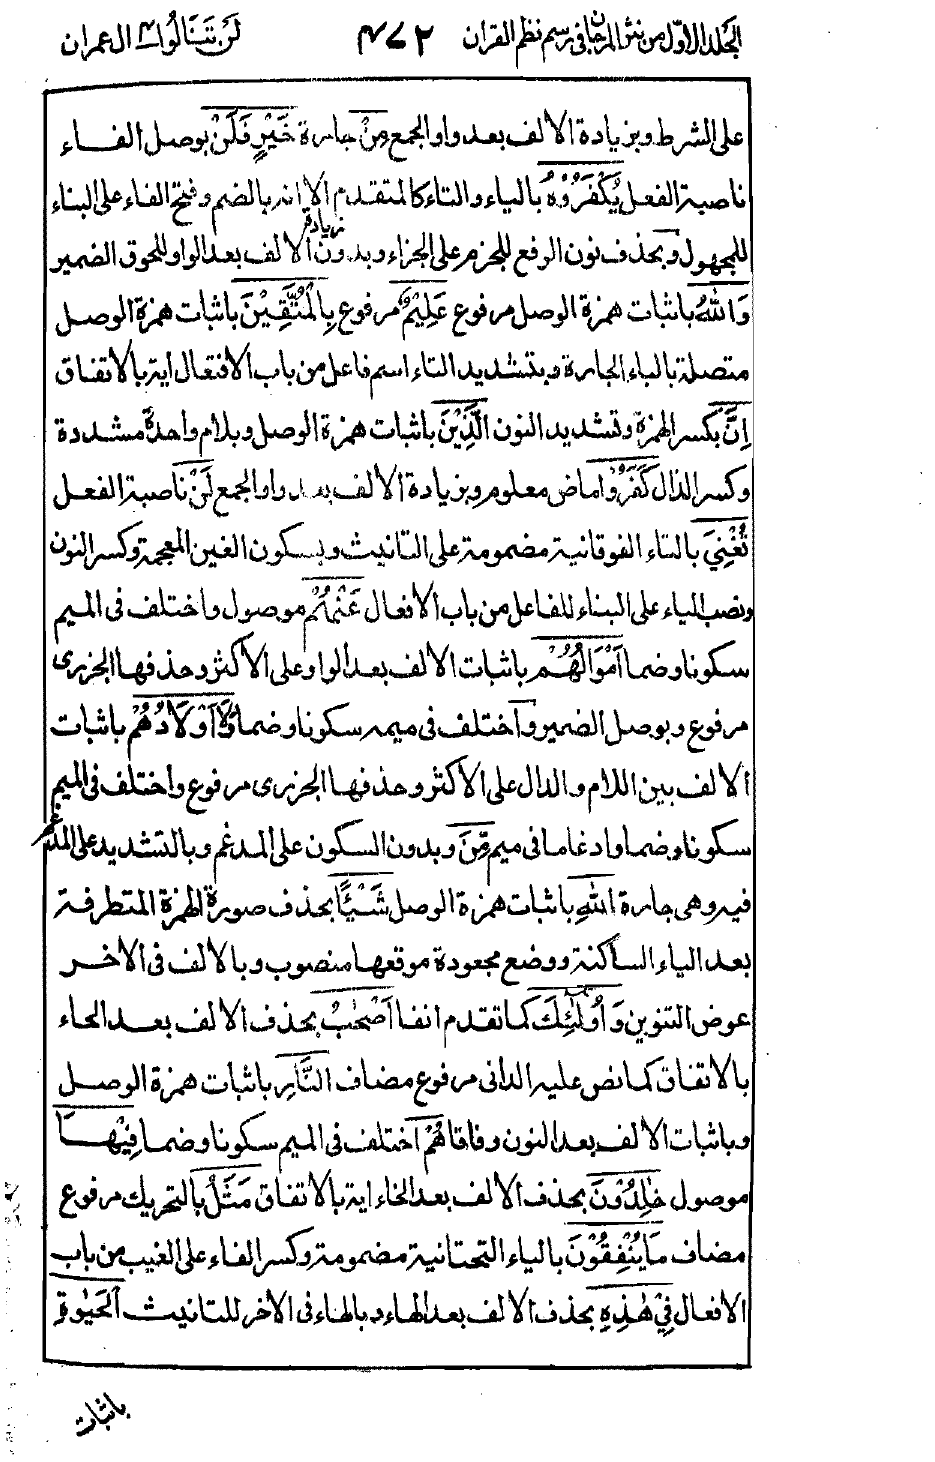 الجلد الاوّل من نثر المرجان فى رسم نظم القران ٤٧٢ لَنْ تَنَالُوا ٤ ال عمران
على الشرط وبزيادة الالف بعد واو الجمع مِنْ جارة خَيْرٍ فَلَنْ بوصل الفاء
ناصبة الفعل يُكْفَرُوْهُ بالياء والتاء كالمتقدم الا انه بالضم وفتح الفاء على البناء
للمجهول وبحذف نون الرفع للجزم على الجزاء وبدون زيادة الالف بعد الواو للحوق الضمير
وَاللّٰهُ باثبات همزة الوصل مرفوع عَلِيْمٌ مرفوع بِالْمُتَّقِيْنَ باثبات همزة الوصل
متصلة بالباء الجارة وبتشديد التاء اسم فاعل من باب الافتعال اية بالاتفاق
اِنَّ بكسر الهمزة وتشديد النون الَّذِيْنَ باثبات همزة الوصل وبلام واحدة مشددة
وكسر الذال كَفَرُوْا ماض معلوم وبزيادة الالف بعد واو الجمع لَنْ ناصبة الفعل
تُغْنِيَ بالتاء الفوقانية مضمومة على التانيث وبسكون الغين المعجمة وكسر النون
ونصب الياء على البناء للفاعل من باب الافعال عَنْهُمْ موصول واختلف فى الميم
سكونا وضما اَمْوَالُهُمْ باثبات الالف بعد الواو على الاكثر وحذفها الجزرى
مرفوع وبوصل الضمير واختلف فى ميمه سكونا وضما وَلَا اَوْلَادُهُمْ باثبات
الالف بين اللام والدال على الاكثر وحذفها الجزرى مرفوع واختلف فى الميم
سكونا وضما وادغاما فى ميم مِّنَ وبدون السكون على المدغم وبالتشديد على المدغم
فيه وهى جارة اللّٰهِ باثبات همزة الوصل شَيْـًٔا بحذف صورة الهمزة المتطرفة
بعد الياء الساكنة ووضع مجعودة موقعها منصوب وبالالف فى الاخر
عوض التنوين وَاُولٰٓئِكَ كما تقدم انفا اَصْحٰبُ بحذف الالف بعد الحاء
بالاتفاق كما نص عليه الدانى مرفوع مضاف النَّارِ باثبات همزة الوصل
وباثبات الالف بعد النون وفاقا هُمْ اختلف فى الميم سكونا وضما فِيْهَا
موصول خٰلِدُوْنَ بحذف الالف بعد الخاء اية بالاتفاق مَثَلُ بالتحريك مرفوع
مضاف مَا يُنْفِقُوْنَ بالياء التحتانية مضمومة وكسر الفاء على الغيب من باب
الافعال فِيْ هٰذِهِ بحذف الالف بعد الهاء وبالهاء فى الاخر للتانيث الْحَيٰوةِ
باثبات